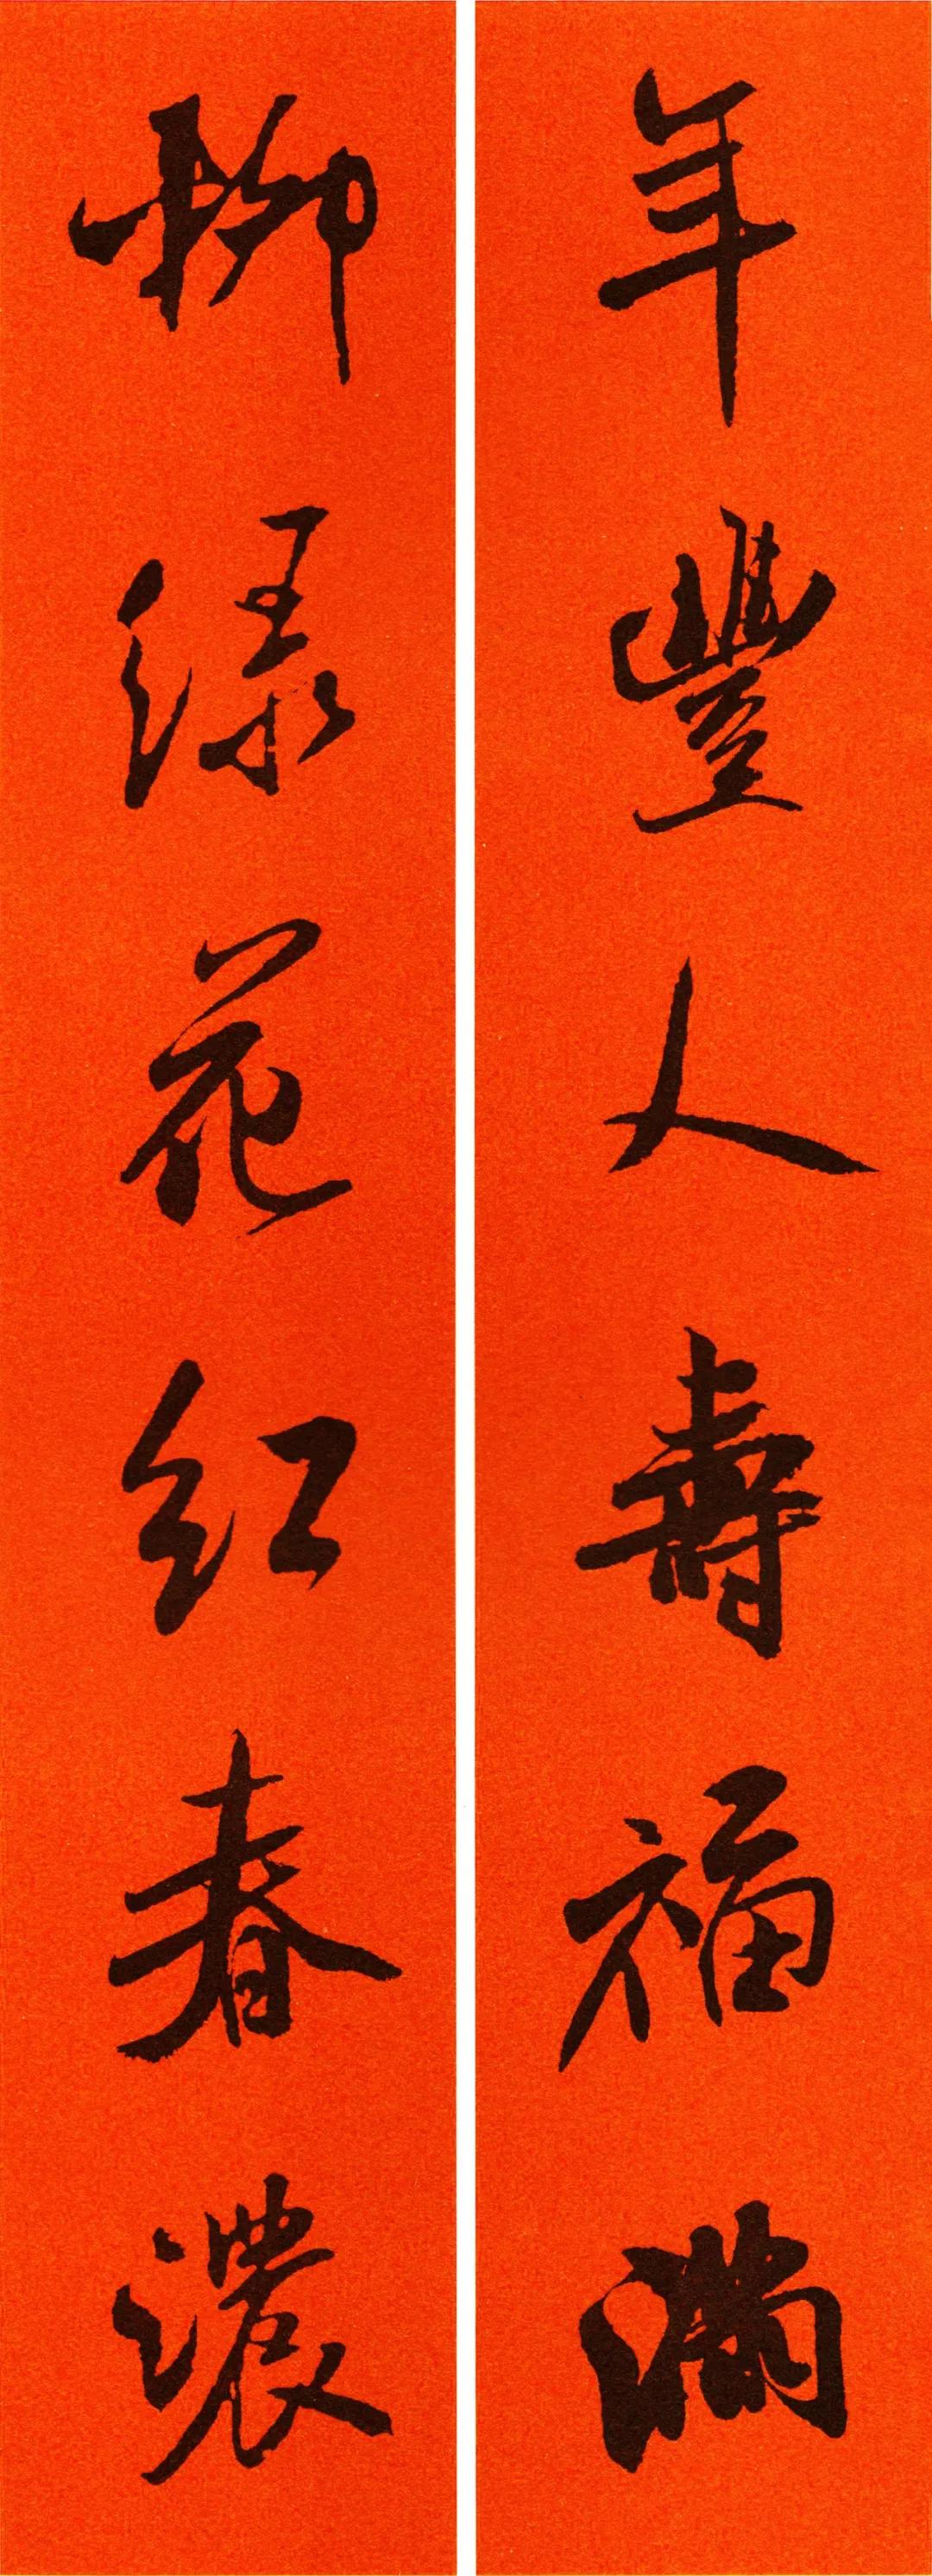 年豐人壽福滿
柳緑花紅春濃